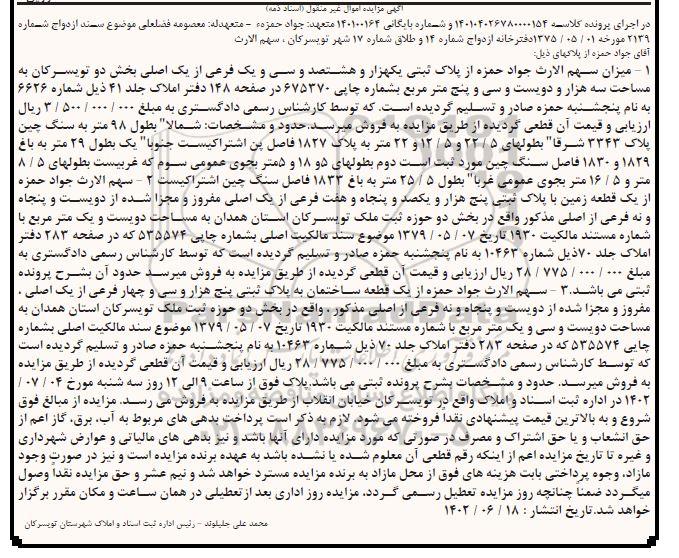 آگهی مزایده اموال غیر منقول (اسناد ذمه)
در اجرای پرونده کلاسه ۱۴۰۱۰۴۰۲۶۷۸۰۰۰۰۱۵۴ و شماره بایگانی ۱۴۰۱۰۰۱۶۴ متعهد: جواد حمزه - متعهدله: معصومه فضلعلی موضوع سند ازدواج شماره
۲۱۳۹ مورخه ۰۱ / ۰۵ / ۱۳۷۵دفترخانه ازدواج شماره ۱۴ و طلاق شماره ۱۷ شهر تویسرکان ، سهم الارث
آقای جواد حمزه از پلاکهای ذیل:
۱ - میزان سهم الارث جواد حمزه از پلاک ثبتی یکهزار و هشتصد و سی و یک فرعی از یک اصلی بخش دو تویسرکان به
مساحت سه هزار و دویست و سی و پنج متر مربع بشماره چاپی ۶۷۵۳۷۰ در صفحه ۱۴۸ دفتر املاک جلد ۴۱ ذیل شماره ۶۶۲۶
به نام پنجشنبه حمزه صادر و تسلیم گردیده است. که توسط کارشناس رسمی دادگستری به مبلغ ۰۰۰ / ۰۰۰ / ۵۰۰ / ۳ ریال
ارزیابی و قیمت آن قطعی گردیده از طریق مزایده به فروش میرسد. حدود و مشخصات: شمالا" بطول ۹۸ متر به سنگ چین
پلاک ۳۳۴۳ شرقا" بطولهای ۵ / ۲۲ و ۵ / ۱۲ و ۲۲ متر به پلاک ۱۸۲۷ فاصل پن اشتراکیست جنوبا" یک بطول ۲۹ متر به باغ
۱۸۲۹ و ۱۸۳۰ فاصل سنگ چین مورد ثبت است دوم بطولهای ۵و ۱۸ و ۵متر بجوی عمومی سوم که غربیست بطولهای ۵ / ۸
متر و ۵ / ۱۶ متر بجوی عمومی غربا" بطول ۵ / ۲۵ متر به باغ ۱۸۳۳ فاصل سنگ چین اشتراکیست ۲ - سهم الارث جواد حمزه
از یک قطعه زمین با پلاک ثبتی پنج هزار و یکصد و پنجاه و هفت فرعی از یک اصلی مفروز و مجزا شده از دویست و پنجاه
و نه فرعی از اصلی مذکور واقع در بخش دو حوزه ثبت ملک تویسرکان استان همدان به مساحت دویست و یک متر مربع با
شماره مستند مالکیت ۱۹۳۰ تاریخ ۰۷ / ۰۵ / ۱۳۷۹ موضوع سند مالکیت اصلی بشماره چاپی ۵۳۵۵۷۴ که در صفحه ۲۸۳ دفتر
املاک جلد ۷۰ذیل شماره ۱۰۴۶۳ به نام پنجشنبه حمزه صادر و تسلیم گردیده است که توسط کارشناس رسمی دادگستری به
مبلغ ۰۰۰ / ۰۰۰ / ۷۷۵ / ۲۸ ریال ارزیابی و قیمت آن قطعی گردیده از طریق مزایده به فروش میرسد حدود آن بشرح پرونده
ثبتی می باشد.۳ - سهم الارث جواد حمزه از یک قطعه ساختمان به پلاک ثبتی پنج هزار و سی و چهار فرعی از یک اصلی ،
مفروز و مجزا شده از دویست و پنجاه و نه فرعی از اصلی مذکور ، واقع در بخش دو حوزه ثبت ملک تویسرکان استان همدان به
مساحت دویست و سی و یک متر مربع با شماره مستند مالکیت ۱۹۳۰ تاریخ ۰۷ / ۰۵ / ۱۳۷۹ موضوع سند مالکیت اصلی بشماره
چاپی ۵۳۵۵۷۴ که در صفحه ۲۸۳ دفتر املاک جلد ۷۰ ذیل شماره ۱۰۴۶۳ به نام پنجشنبه حمزه صادر و تسلیم گردیده است
که توسط کارشناس رسمی دادگستری به مبلغ ۰۰۰ / ۰۰۰ / ۷۷۵ / ۲۸ ریال ارزیابی و قیمت آن قطعی گردیده از طریق مزایده
به فروش میرسد. حدود و مشخصات بشرح پرونده ثبتی می باشد.پلاک فوق از ساعت ۹ الی ۱۲ روز سه شنبه مورخ ۰۴ / ۰۷ /
۱۴۰۲ در اداره ثبت اسناد و املاک واقع در تویسرکان خیابان انقلاب از طریق مزایده به فروش می رسد. مزایده از مبالغ فوق
شروع و به بالاترین قیمت پیشنهادی نقداً فروخته می شود. لازم به ذکر است پرداخت بدهی های مربوط به آب، برق، گاز اعم از
حق انشعاب و یا حق اشتراک و مصرف در صورتی که مورد مزایده دارای آنها باشد و نیز بدهی های مالیاتی و عوارض شهرداری
و غیره تا تاریخ مزایده اعم از اینکه رقم قطعی آن معلوم شده یا نشده باشد به عهده برنده مزایده است و نیز در صورت وجود
مازاد، وجوه پرداختی بابت هزینه های فوق از محل مازاد به برنده مزایده مسترد خواهد شد و نیم عشر و حق مزایده نقداً وصول
میگردد ضمناً چنانچه روز مزایده تعطیل رسمی گردد، مزایده روز اداری بعد از تعطیلی در همان ساعت و مکان مقرر برگزار
خواهد شد.تاریخ انتشار : ۱۸ / ۰۶ / ۱۴۰۲
محمد علی جلیلوند - رئیس اداره ثبت اسناد و املاک شهرستان تویسرکان